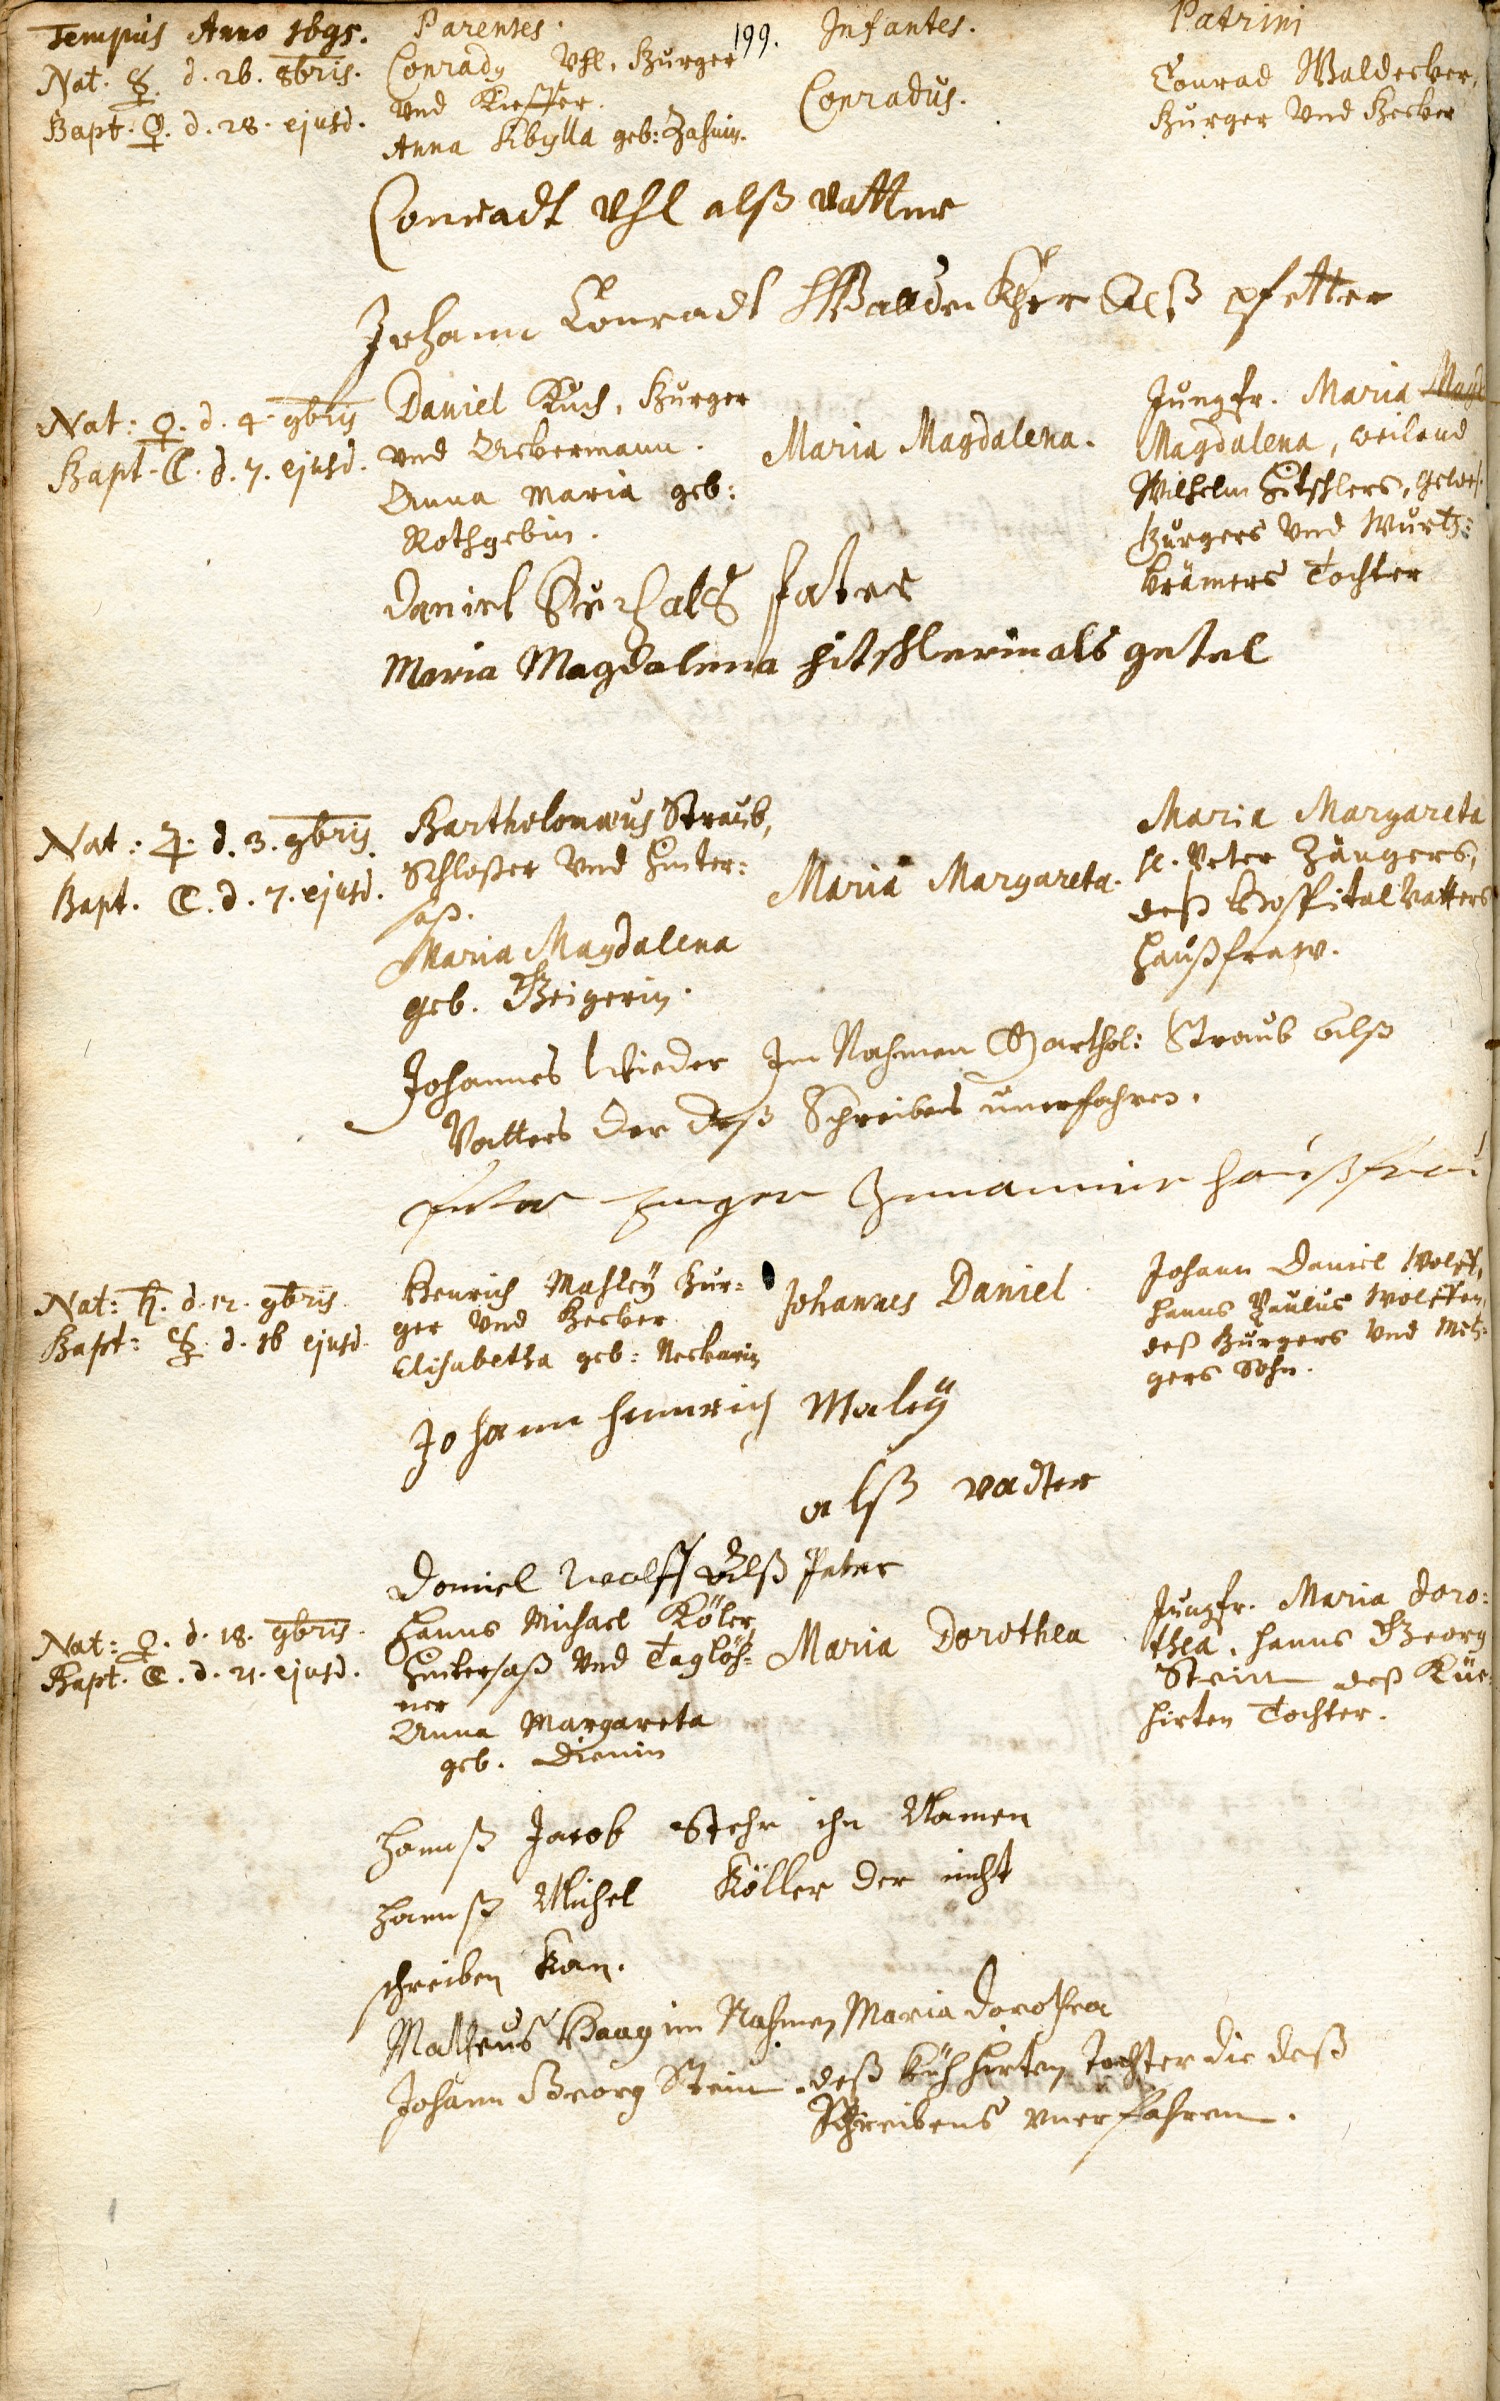 199.
Tempus Anno 1695. Parentes. Infantes. Patrini
Nat. ☿. d. 26. 8bris.
Bapt. ♀. d. 28. ejusd.
Conrady Vhl, Burger
und Kieffer.
Anna Sibylla geb: Zahnin.
Conradus.
Conrad Waldecker,
Burger und Becker
Conradt Vhl alß vatter
Johann Conradt Walldeckher Alß pfetter
Nat: ♀. d. 4. 9bris
Bapt. ☾. d. 7. ejusd.
Daniel Kuch, Burger
und Ackermann.
Anna Maria geb:
Rothgebin.
Maria Magdalena.
Jungfr. Maria Magd
Magdalena, weiland
Wilhelm Hitschlers, gewes.
Burgers und Wurtz:
krämers Tochter
Daniel als fater
Maria Magdalena hitschlerin als getel
Nat: ♃. d. 3. 9bris.
Bapt. ☾. d. 7. ejusd.
Bartholomæus Straub,
Schloßer und Hinter:
saß.
Maria Magdalena
geb. Geigerin.
Maria Margareta.
Maria Margareta
H. Peter Zängers,
deß Hospital Vatters
Haußfraw.
Johannes Wieder Im Nahmen Barthol: Straub alß
Vatters der deß Schreibens unerfahren.
Peter Zenger haußfrau
Nat: ♄. d. 12. 9bris
Bapt: ☿. d. 16 ejusd.
Henrich Mahley Bur:
ger und Becker
Elisabetha geb: Neckarin
Johannes Daniel
Johann Daniel Wolff,
Hanns Paulus Wolffen,
deß Burgers und Metz:
gers Sohn.
Johann henrich Maleÿ
alß vadter
Daniel Wolff Alß Peter
Nat: ♀. d. 18. 9bris.
Bapt. ☾. d. 21. ejusd.
Hanns Michael Köler,
Hintersaß und Taglöh:
ner
Anna Margareta
geb. Dienin
Maria Dorothea
Jungfr. Maria Doro:
thea, Hanns Georg
Stein deß Küe:
hirten Tochter.
Hannß Jacob Stehr ihn Namen
Hannß Michel Köller der nicht
schreiben Kan.
Matheus Haag im Nahmen Maria Dorothea
Johann Georg Stein deß Küh hirten Tochter die deß
Schreibens unerfahren.